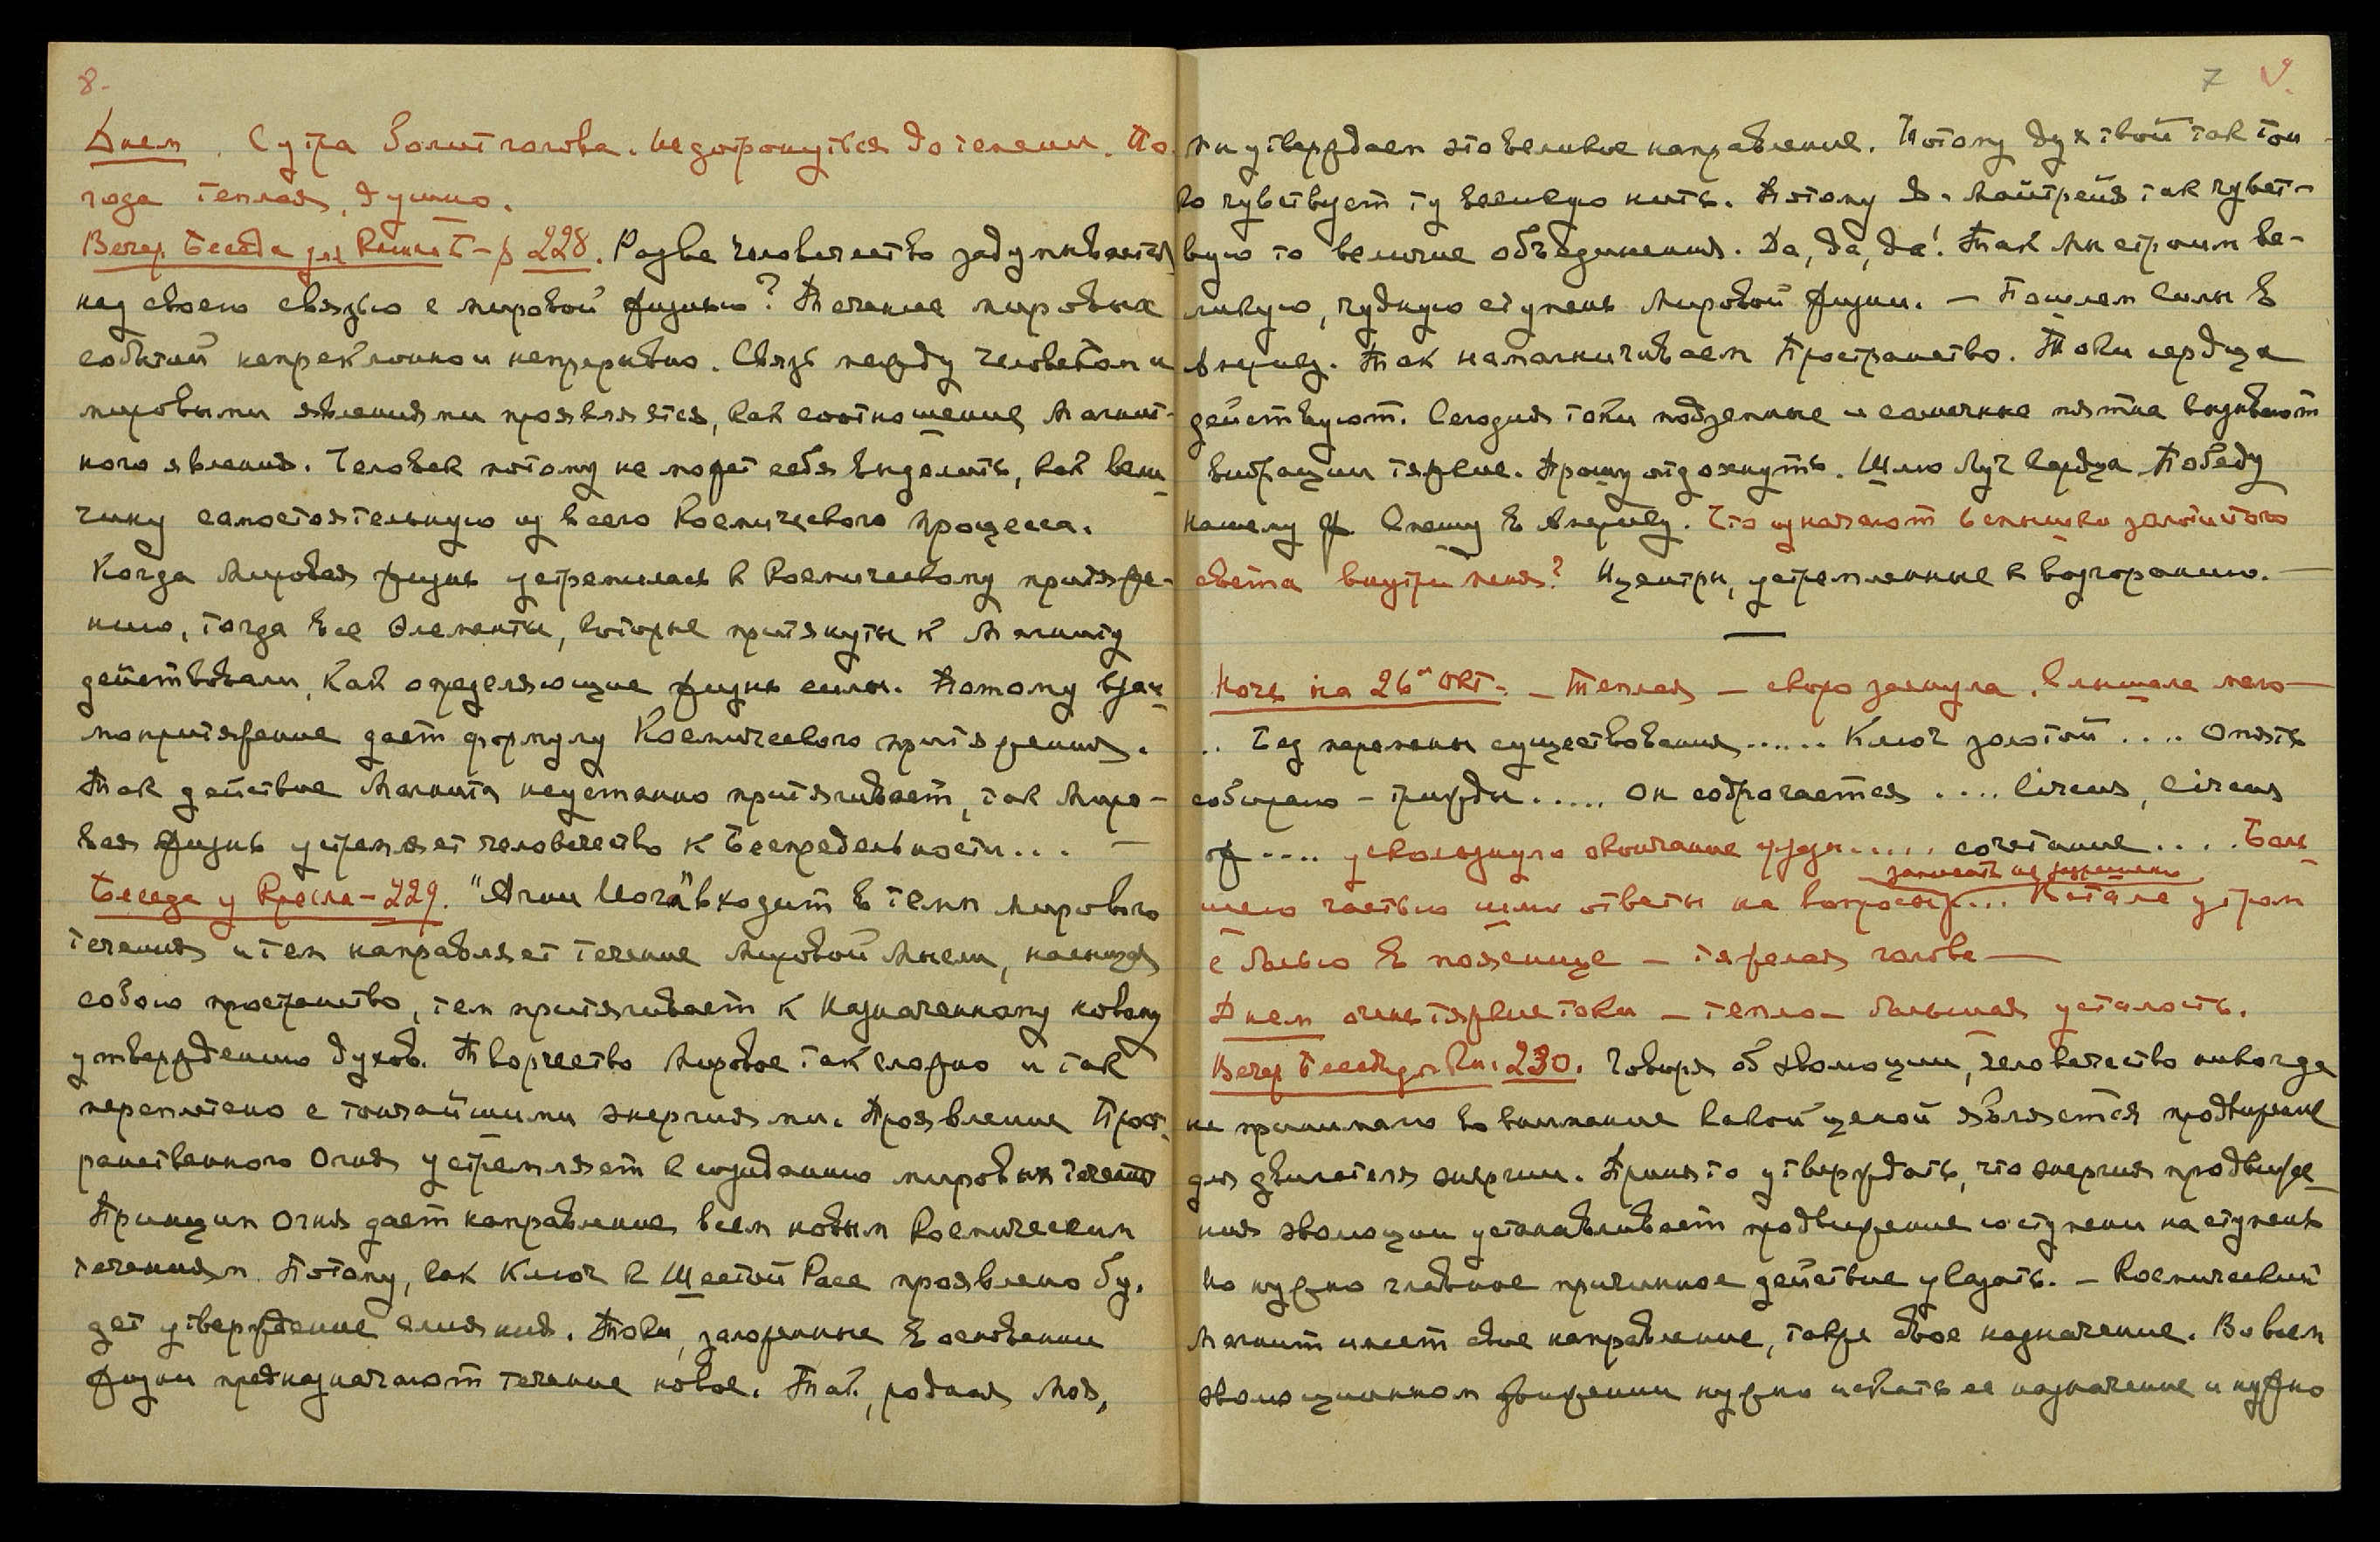 8.
Днем. С утра болит голова. Не дотронуться до темени. По-
года теплая, душно.
Вечер. Беседа для Книги Б - § 228. Разве человечество задумывается
над своею связью с мировой жизнью? Течение мировых
событий непреклонно и непрерывно. Связь между человеком и
мировыми явлениями проявляется, как соотношение Магнит-
ного явления. Человек потому не может себя выделить, как вели-
чину самостоятельную из всего Космического процесса.
Когда Мировая жизнь устремилась к Космическому притяже-
нию, тогда все элементы, которые притянуты к Магниту
действовали, как определяющие жизнь силы. Потому взаи-
мопритяжение дает формулу Космического притяжения.
Так действие Магнита неустанно притягивает, так Миро-
вая жизнь устремляет человечество к Беспредельности... —
Беседа у Кресла - 229. "Агни Йога" входит в темп мирового
течения и тем направляет течение Мировой Мысли, насыщая
собою пространство, тем притягивает к назначенному новому
утверждению духов. Творчество Мировое так сложно и так
переплетено с тончайшими энергиями. Проявление Прост-
ранственного Огня устремляет к созиданию мировых течений
Принцип Огня дает направление всем новым Космическим
течениям. Потому, как Ключ к Шестой Расе проявлено бу-
дет утверждение слияния. Токи, заложенные в основании
жизни предназначают течение новое. Так, родная Моя,
7 9.
Мы утверждаем это великое направление. Потому дух твой так тон-
ко чувствует ту великую нить. Потому Я - Майтрейя так чувст-
вую то величие объединения. Да, да, да! Так Мы строим ве-
ликую, чудную ступень Мировой жизни. — Пошлем силы в
Америку. Так намагничиваем Пространство. Токи сердца
действуют. Сегодня токи подземные и солнечные пятна вызывают
вибрации тяжкие. Прошу отдохнуть. Шлю Луч Сердца Победу
нашему ф. Спешу в Америку. Что означают вспышки золотистого
света внутри меня? И центры, устремленные к возгоранию. —
—
Ночь на 26ое Окт. — Теплая — скоро заснула. Слышала мало —
.. Без перемены существования...... Ключ золотой .... Опять
собираю - трижды..... Он содрогается .... Circus, Circus
of .... ускользнуло окончание фразы..... сочетание.... Боль-
записать не разрешено
шею частью шли ответы на вопросы... Встала утром
с болью в пояснице — тяжелая голова —
Днем очень тяжкие токи — тепло — большая усталость.
Вечер. Беседа для Кн. 230. Говоря об эволюции, человечество никогда
не принимало во внимание какой ценой является продвижение
для двигателя энергии. Принято утверждать, что энергия продвиже-
ния эволюции устанавливает продвижение со ступени на ступень
Но нужно главное причинное действие указать. — Космический
Магнит имеет свое направление, также свое назначение. Во всем
эволюционном движении нужно искать ее назначение и нужно